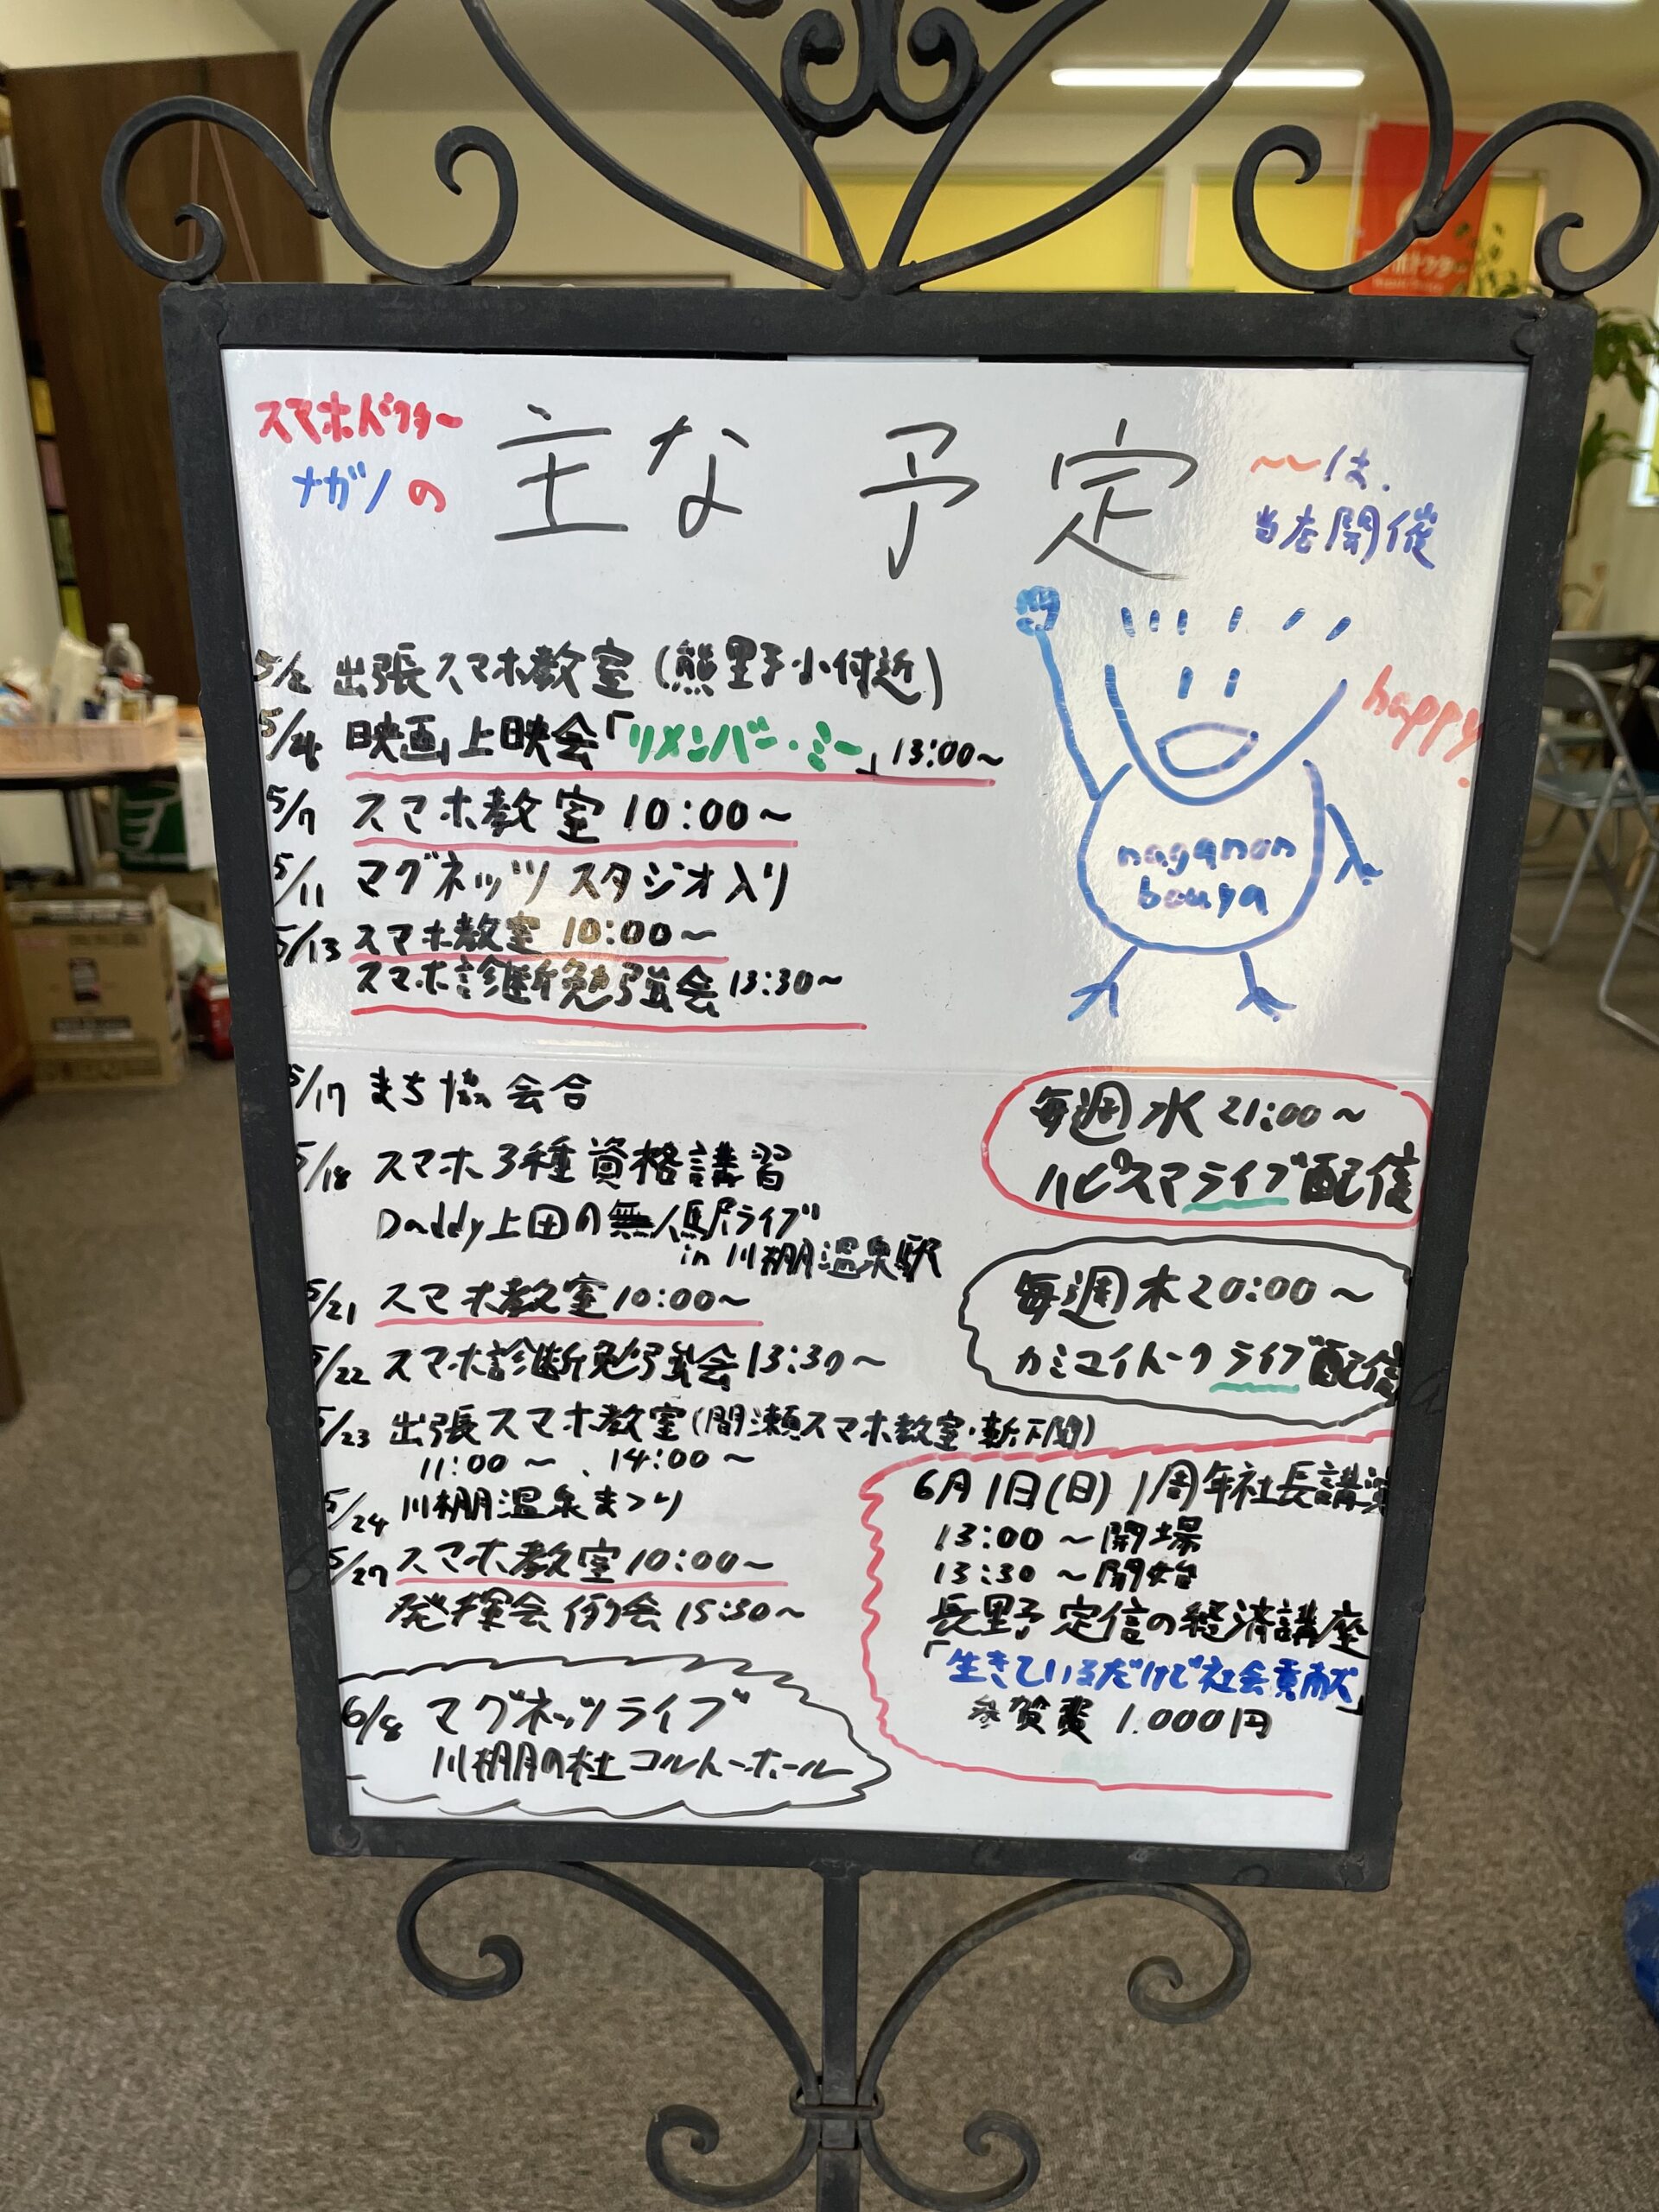 スマホドクター
ナガノの
主な予定
～～は、
当店開催
5/2 出張スマホ教室(熊野小付近)
5/4 映画上映会「リメンバー・ミー」13:00～
5/7 スマホ教室 10:00～
5/11 マグネッツ スタジオ入り
5/13 スマホ教室 10:00～
スマホ診断勉強会 13:30～
happy!
naganon
bouya
5/17 まち協会合
5/18 スマホ3種資格講習
Daddy上田の無人駅ライブ
in 川棚温泉駅
5/21 スマホ教室 10:00～
5/22 スマホ診断勉強会 13:30～
5/23 出張スマホ教室(間瀬スマホ教室・新下関)
11:00～、14:00～
5/24 川棚温泉まつり
5/27 スマホ教室 10:00～
発揮会 例会 15:30～
6/8 マグネッツライブ
川棚の杜 コルトーホール
毎週水 21:00～
ハピスマライブ配信
毎週木 20:00～
カミコイトークライブ配信
6月1日(日) 1周年社長講演
13:00～開場
13:30～開始
長野定信の経済講座
「生きているだけで社会貢献」
参賀費 1.000円